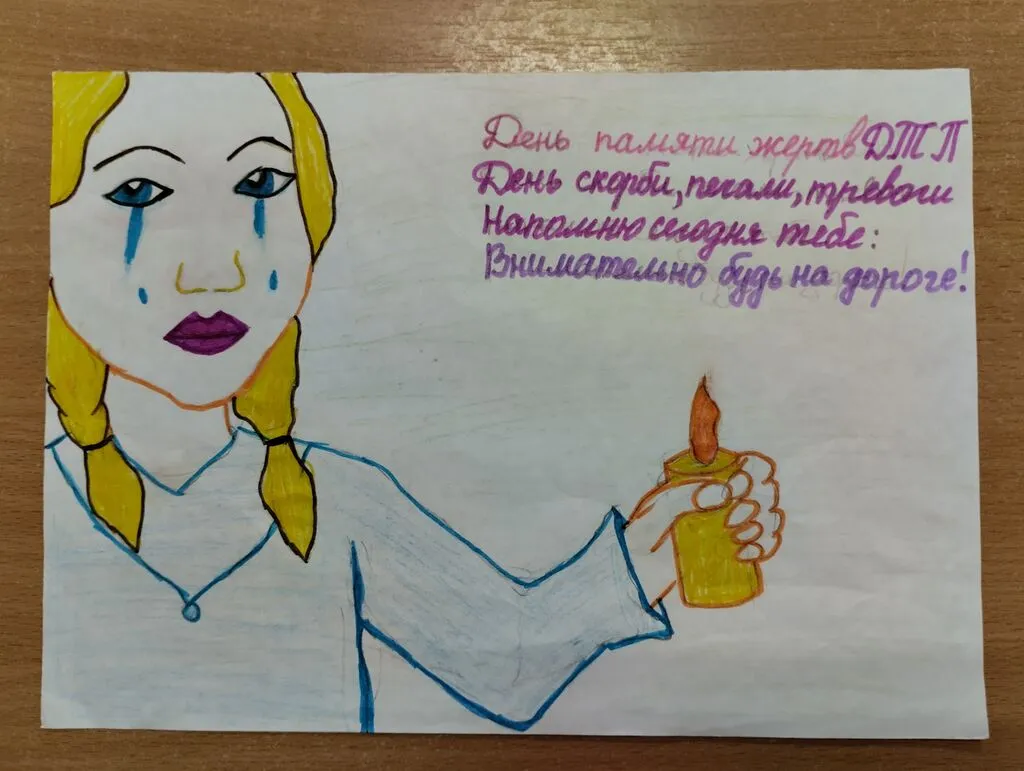 День памяти жертв ДТП
День скорби, печали, тревоги
Напомню сегодня тебе:
Внимательно будь на дороге!